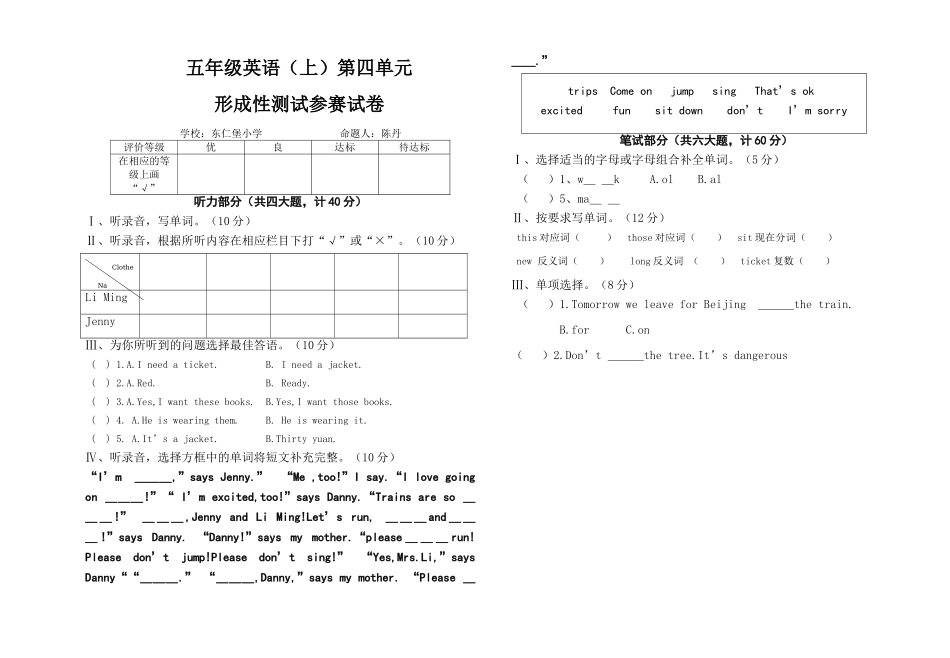 五年级英语（上）第四单元
形成性测试参赛试卷
学校：东仁堡小学 命题人：陈丹
评价等级 优 良 达标 待达标
在相应的等
级上画
“√”
听力部分（共四大题，计 40 分）
Ⅰ、听录音，写单词。（10 分）
Ⅱ、听录音，根据所听内容在相应栏目下打“√”或“×”。（10 分）
Clothe
Na
Li Ming
Jenny
Ⅲ、为你所听到的问题选择最佳答语。（10 分）
（ ）1.A.I need a ticket. B. I need a jacket.
（ ）2.A.Red. B. Ready.
（ ）3.A.Yes,I want these books. B.Yes,I want those books.
（ ）4. A.He is wearing them. B. He is wearing it.
（ ）5. A.It’s a jacket. B.Thirty yuan.
Ⅳ、听录音，选择方框中的单词将短文补充完整。（10 分）
“I’m ______,”says Jenny.” “Me ,too!”I say.“I love going
on ______!”“ I’m excited,too!”says Danny.“Trains are so __
__ __!” __ __ __,Jenny and Li Ming!Let’s run, __ __ __ and __ __
__ !”says Danny. “Danny!”says my mother.“please __ __ __ run!
Please don’t jump!Please don’t sing!” “Yes,Mrs.Li,”says
Danny““______.” “______,Danny,”says my mother. “Please __
____.”
trips Come on jump sing That’s ok
excited fun sit down don’t I’m sorry
笔试部分（共六大题，计 60 分）
Ⅰ、选择适当的字母或字母组合补全单词。（5 分）
（ ）1、w__ __k A.ol B.al
（ ）5、ma__ __
Ⅱ、按要求写单词。（12 分）
this 对应词（ ） those 对应词（ ） sit 现在分词（ ）
new 反义词（ ） long 反义词 （ ） ticket 复数（ ）
Ⅲ、单项选择。（8 分）
（ ）1.Tomorrow we leave for Beijing ______the train.
B.for C.on
（ ）2.Don’t ______the tree.It’s dangerous